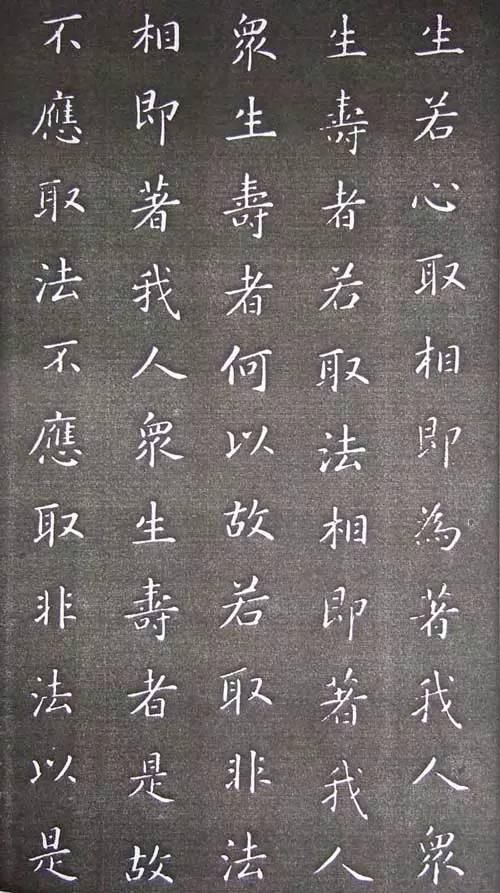 生若心取相即為著我人眾
生壽者若取法相即著我人
眾生壽者何以故若取非法
相即著我人眾生壽者是故
不應取法不應取非法以是